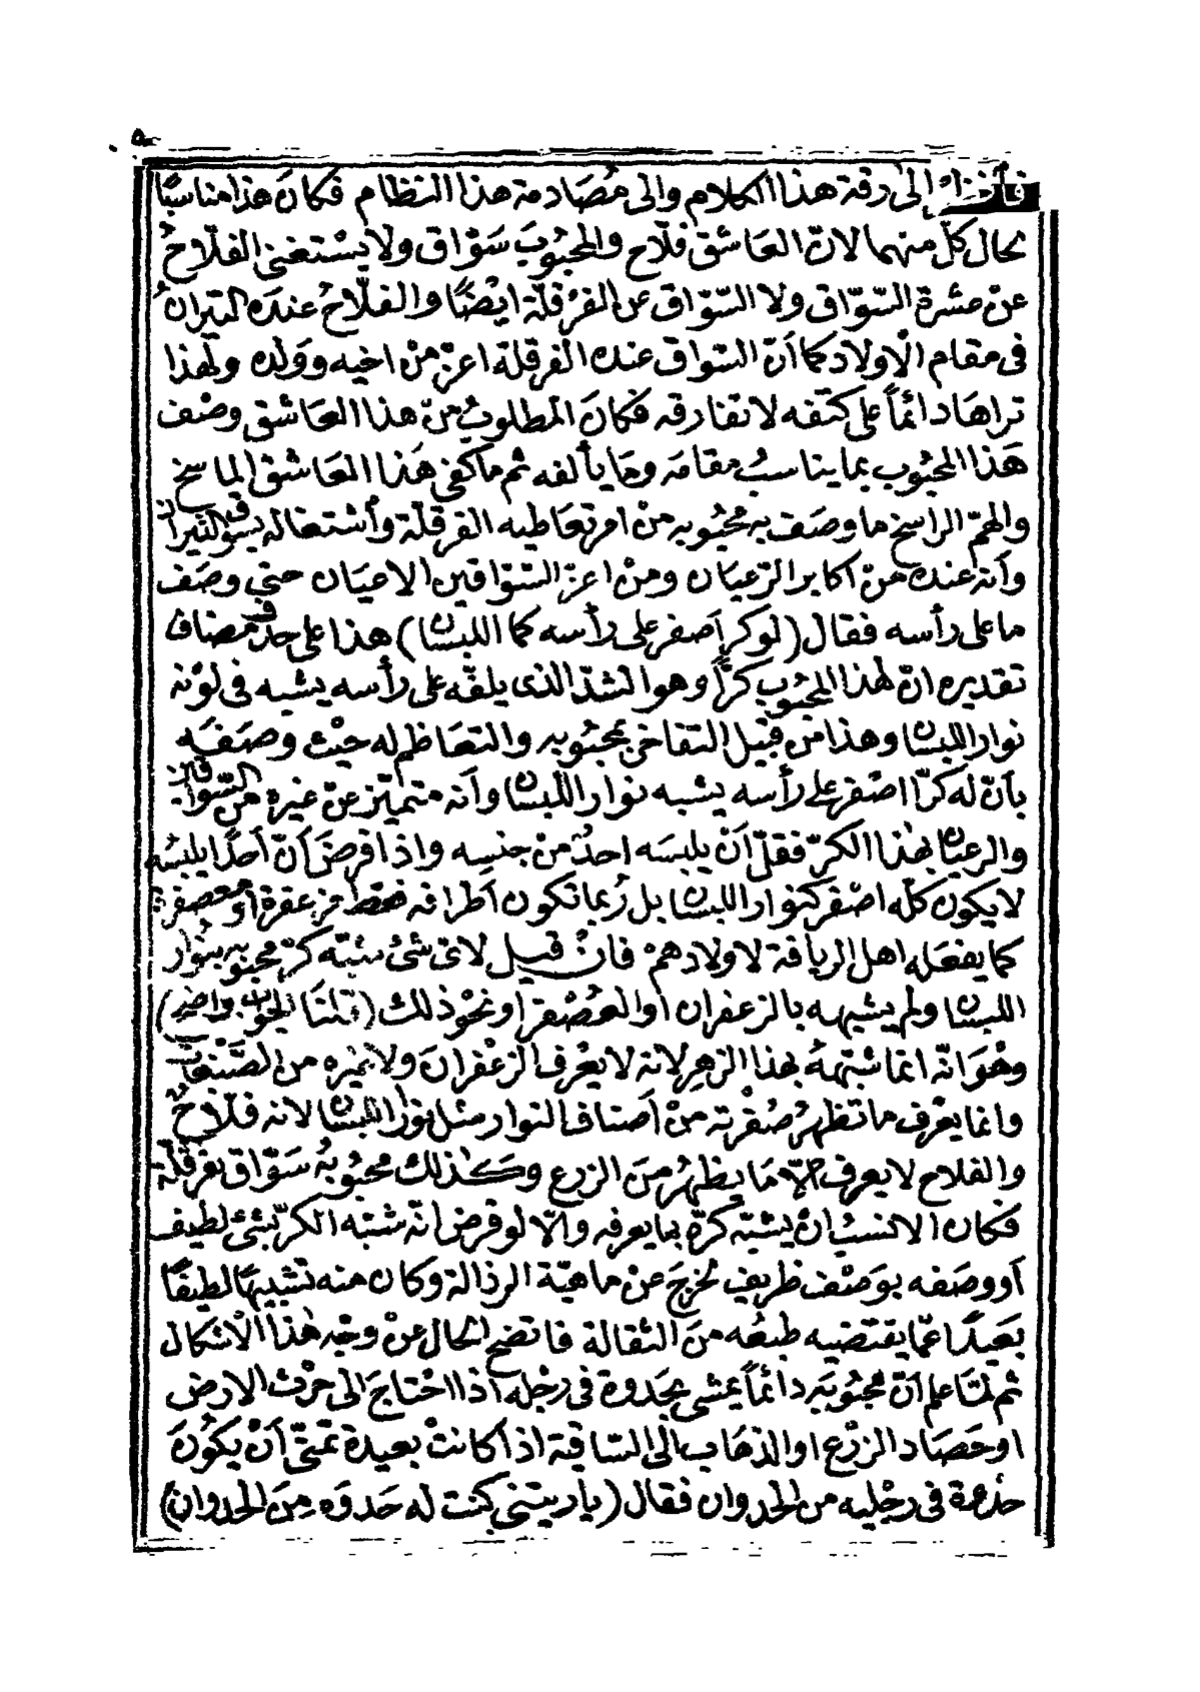 ٥٠
إلى رقة هذا الكلام والى مصادمة هذا النظام فكان هذا مناسبًا
بحال كلّ منهما لانّ العاشق فلّاح والمحبُوبَ سَوّاق ولا يسْتغني الفلّاحُ
عنْ عشرة السّوّاق ولا السّوّاق عن الفرْقلّة ايضًا والفلّاحُ عنده التيرانُ
فى مقام الْاولاد كما أنّ السّواق عنده الفرقلة اعزّ منْ اخيه وولده ولهذا
تراها دائماً على كتفه لا تفارقه فكانَ المطلوبُ منْ هذا العاشق وصْف
هَذا المحبُوب بما يناسبُ مقامَه وما يألفه ثم ما كفى هَذا العَاشق الماسخ
والهمّ الراسخ ما وصَف به محْبُوبه منْ امر تعَاطيه الفرقلّة وأشتغاله بسَوْق الثيران
وأنه عنده منْ اكابر الرّعيَان ومنْ اعزّ السّوّاقين الاعيَان حتى وصَف
ما على رأسه فقال (لوكر اَصفر على رأسه كما اللبسان) هذا على حذْف مضاف
تقديره انّ لهذا المحبُوب كرًّا وهو الشدّ الذى يلفّه على رأسه يشبه فى لوْنه
نوار اللبسان وهذا من قبيل التفاخر بمحْبُوبه والتعَاظم له حيْث وصَفَه
بأنّ له كرًّا اصْفر على رأسه يشبه نوار اللبسان وأنه متميّز عنْ غيره من السّوّاقين
والرعيان بهذا الكرّ فقلّ أنْ يلبسَه احدٌ منْ جنسِه واذا فرضَ أنّ أحدًا يلبسُه
لا يكون كلّه اصْفر كنوار اللبسان بل رُبما تكون أطرافه فقط مزعفرة أوْ معصفرة
كما يفعَله اهل الريافة لاولادهمْ فانْ قيل لاىّ شئ شبّه كرّ محبُوبه بنوار
اللبسان ولم يشبهه بالزعفران أو العُصْفر أو نحْو ذلك (قلنَا الجواب واضح)
وهْوَ انّه انما شبّههُ بهذا الزهر لانه لا يعْرف الزعْفرانَ ولا غيْره من الصّبْغات
وانما يعْرف ما تظهرُ صُفْرته منْ أصناف النوار مثل نوار اللبسان لانه فلّاحٌ
والفلاح لا يعرف إلّا مَا يظهرُ منَ الزرع وكذلك محْبُوبهُ سَوّاق بفرقلّة
فكان الانسبُ انْ يشبّه كرّه بما يعرفه والّا لو فرض انّه شبّه الكرّ بشئ لطيف
أو وصَفه بوَصْف ظريف لخرجَ عنْ ماهيّة الرذالة وكان منه تشبيهًا لطيفًا
بَعيدًا عمّا يقتضيه طبعُه منَ الثقالة فاتضح الحال عنْ وجْه هٰذا الْاشكال
ثم لمّا علم أنّ محْبُوبَه دائماً يمْشى بحَدوة فى رجْله اذا احْتاجَ الى حرْث الارض
او حَصَاد الزرْع او الذهَاب الى السّاقية اذا كانتْ بعيدة تمنّى أنْ يكُونَ
فى رجْليه من الحدوان فقال (يا ريتنى كنت له حَدوَه مِنَ الحدوان)